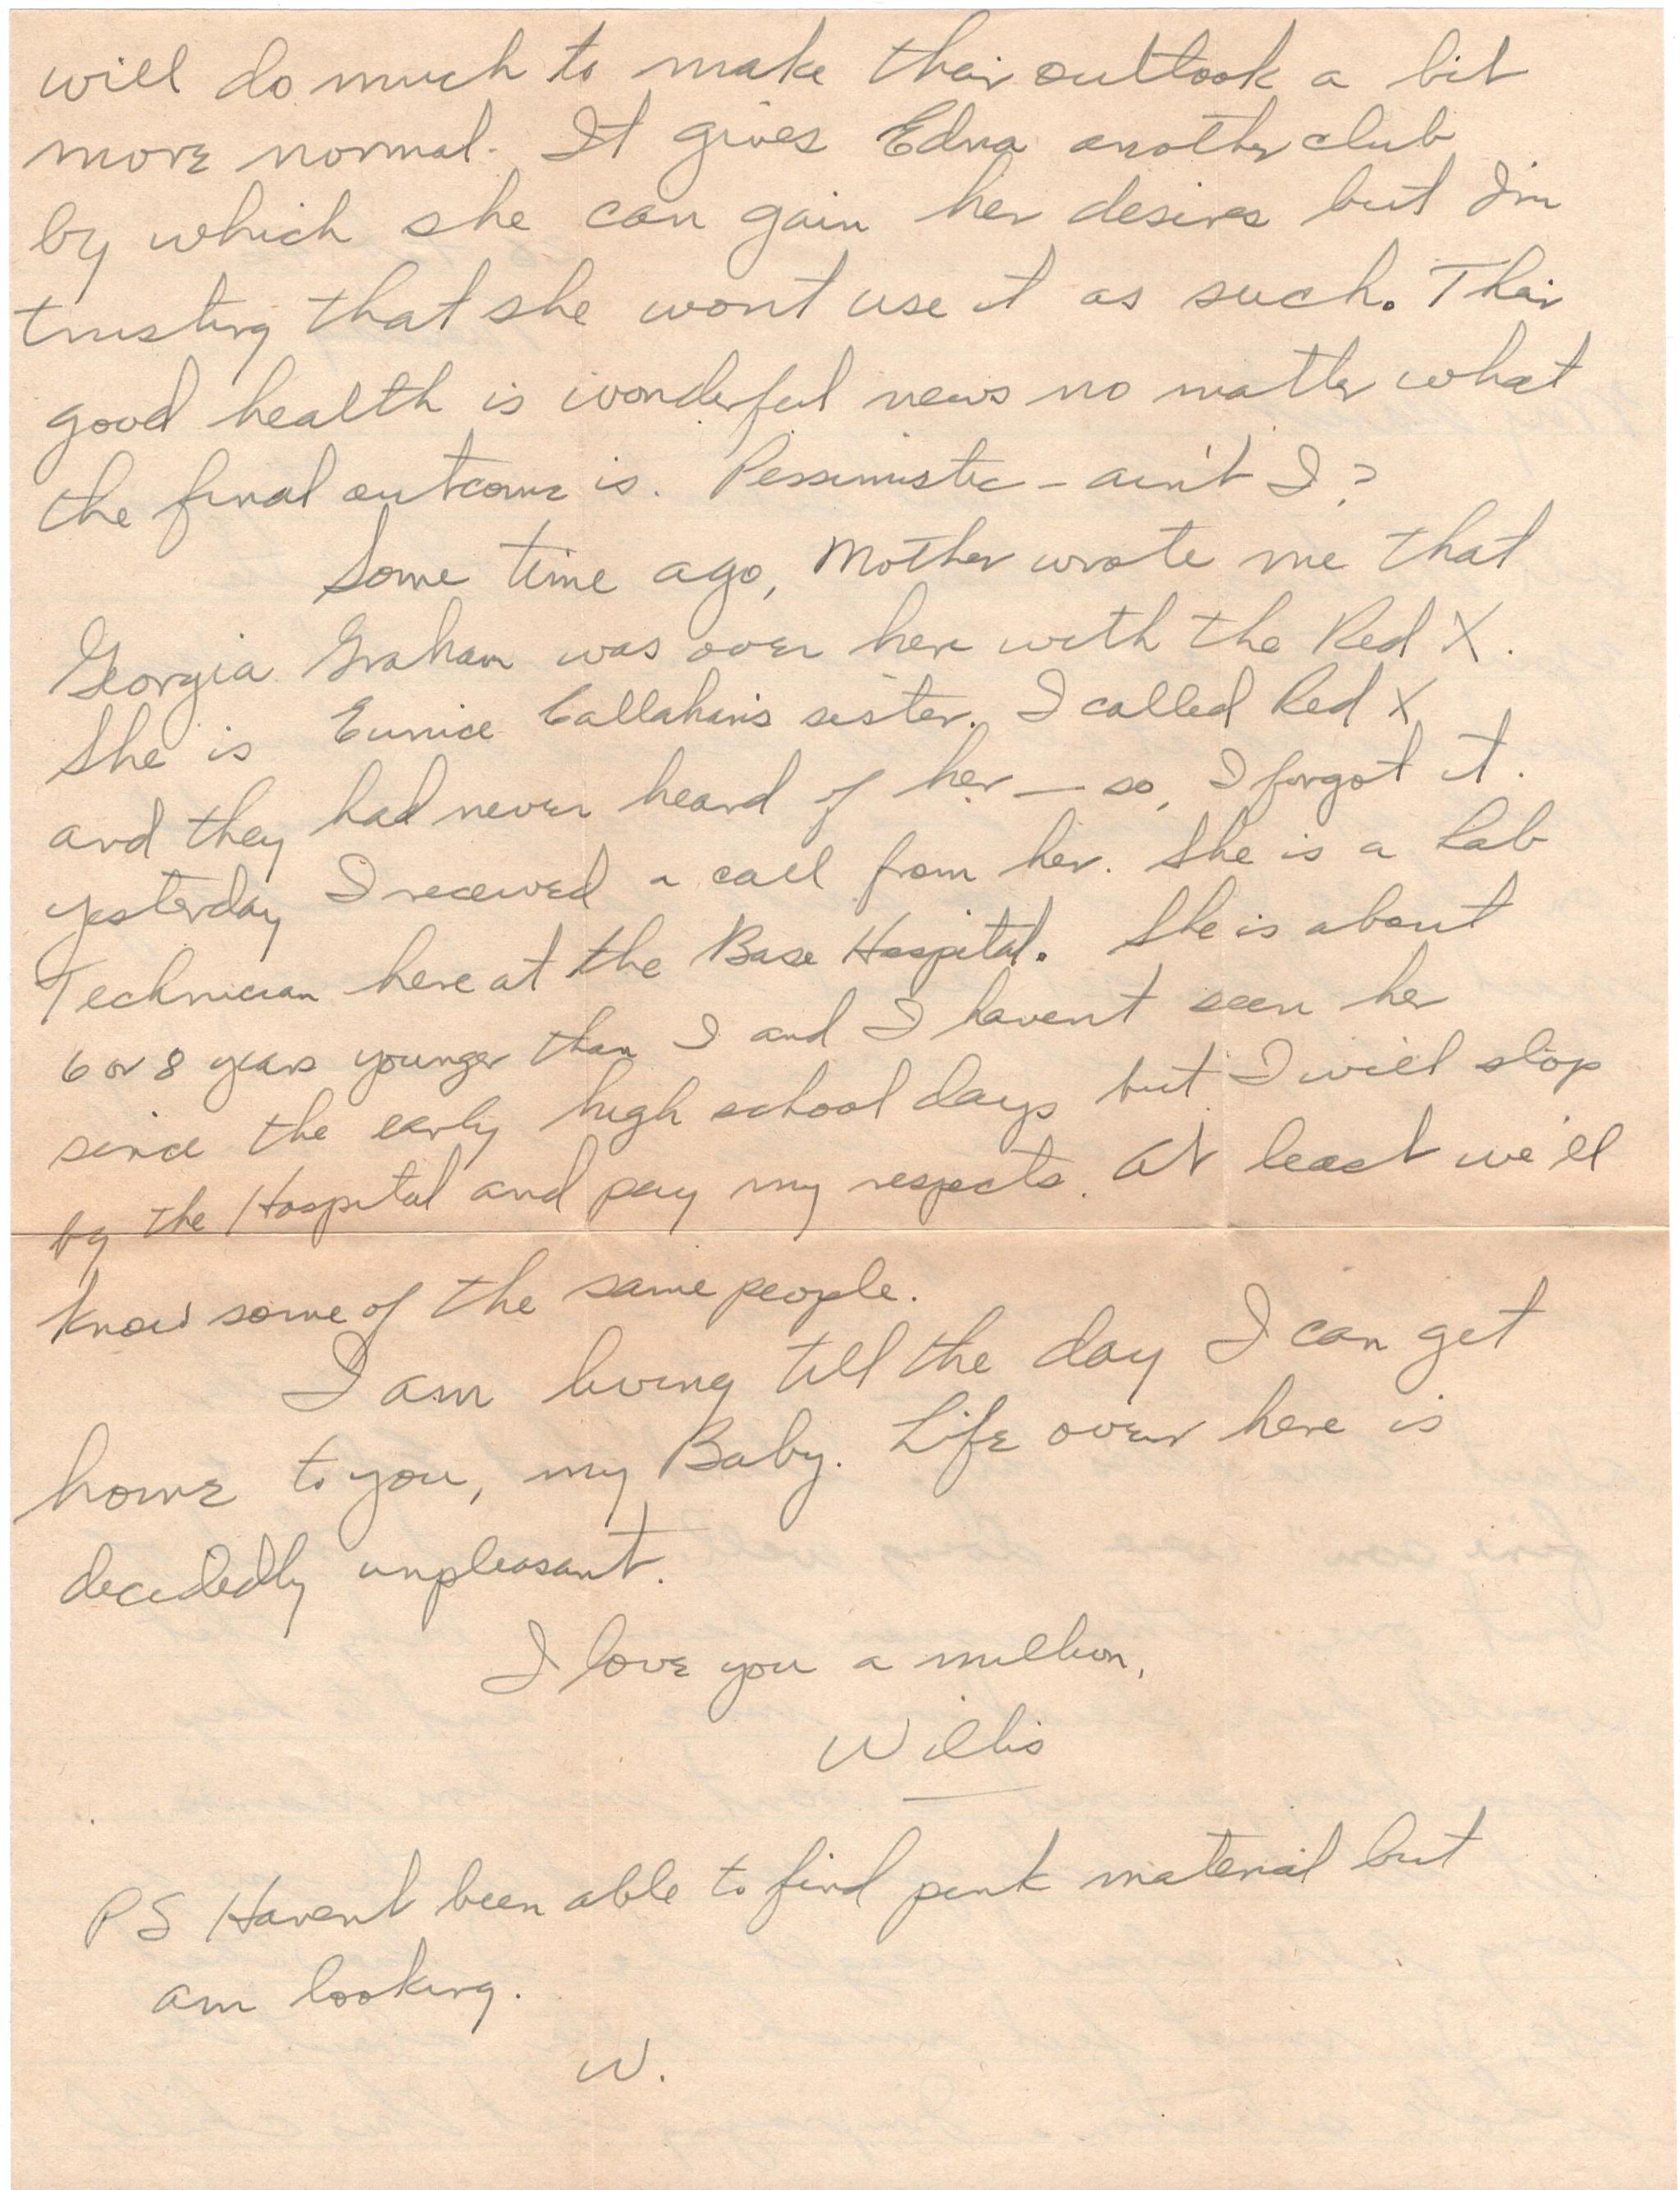 will do much to make their outlook a bit
more normal. It gives Edna another club
by which she can gain her desires but I'm
trusting that she wont use it as such. Their
good health is wonderful news no matter what
the final outcome is. Pessimistic - ain't I?
Some time ago, Mother wrote me that
Georgia Graham was over here with the Red X.
She is Eunice Callahan's sister. I called Red X
and they had never heard of her — so, I forgot it.
yesterday I received a call from her. She is a Lab
Technician here at the Base Hospital. She is about
6 or 8 years younger than I and I havent seen her
since the early high school days but I will stop
by the Hospital and pay my respects. At least we'll
know some of the same people.
I am living till the day I can get
home to you, my Baby. Life over here is
decidedly unpleasant.
I love you a million,
Willis
PS Havent been able to find pink material but
am looking.
W.